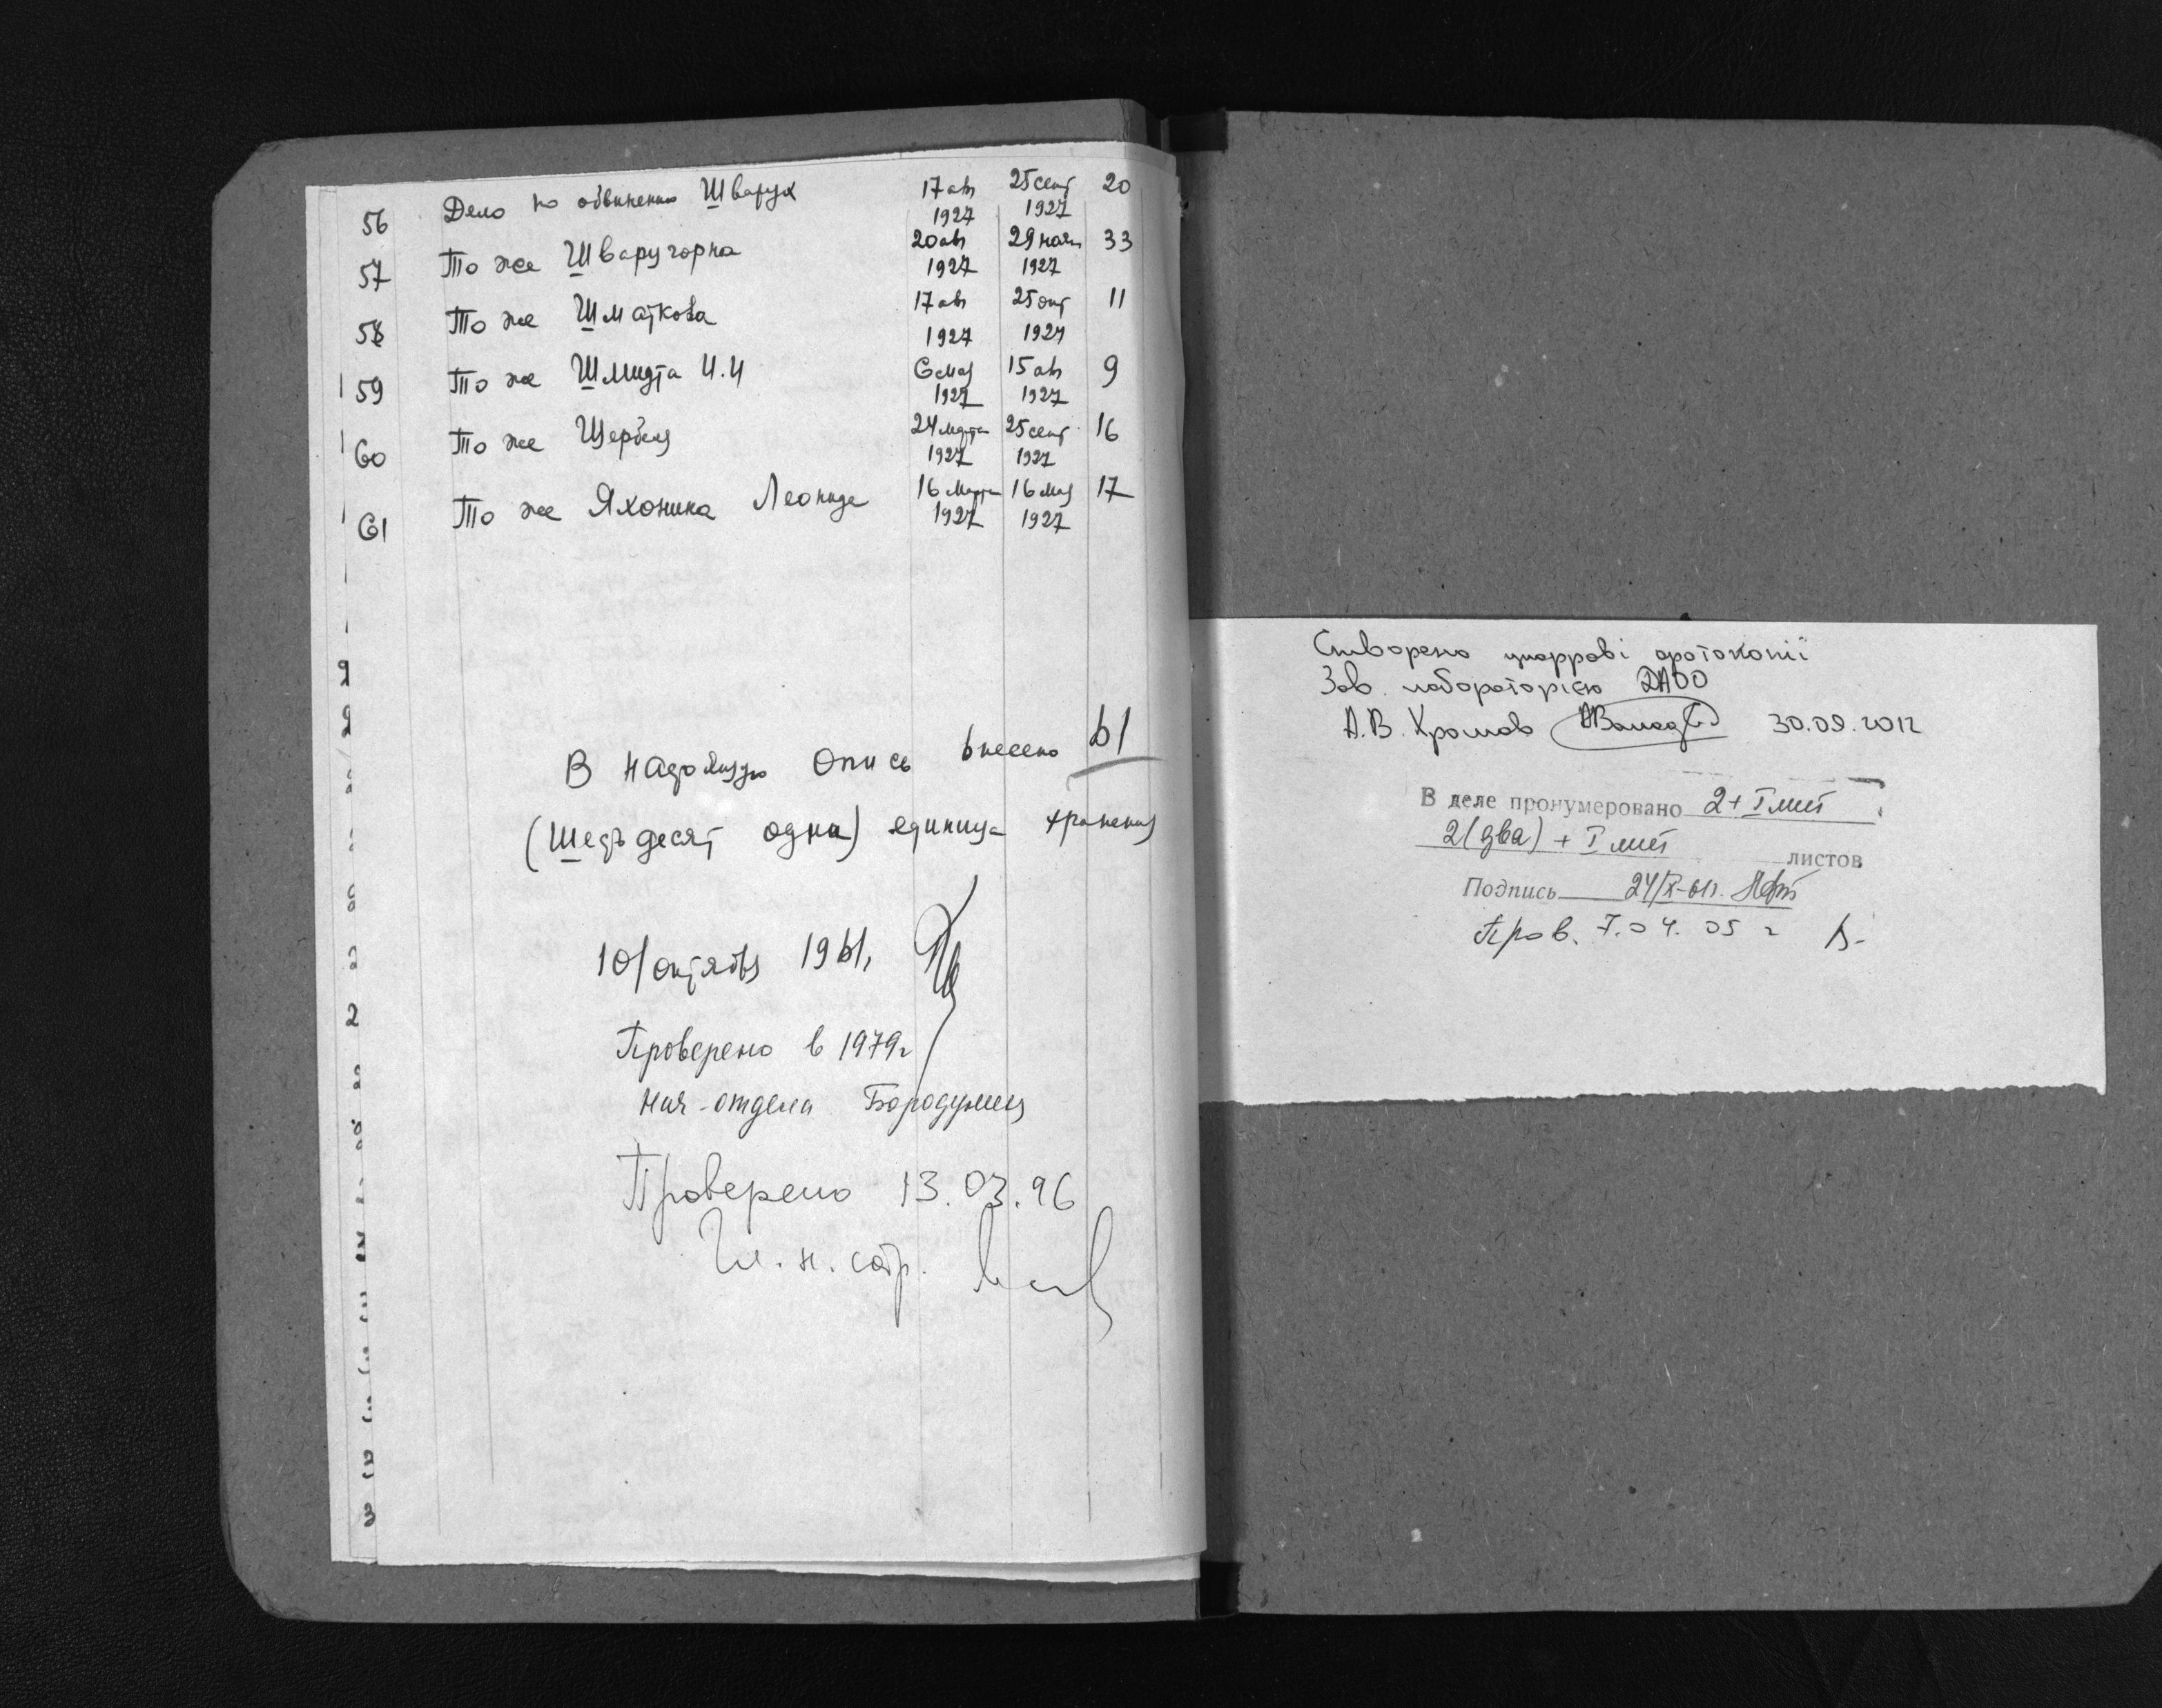 56 Дело по обвинению Шварух 17 авг 1927 25 сент 1927 20
57 То же Шваругорна 20 авг 1927 29 ноян 1927 33
58 То же Шматкова 17 авг 1927 25 окт 1927 11
59 То же Шмидта И.И 6 мая 1927 15 авг 1927 9
60 То же Щербея 24 марта 1927 25 сент 1927 16
61 То же Яхонина Леонида 16 марта 1927 16 мая 1927 17
В настоящую опись внесено 61
(Шестьдесят одна) единица хранения
10/октября 1961г
Проверено в 1979г
нач-отдела
Проверено 13.03.96
Гл. н. сотр.
Створено цифрові фотокопії
Зав. лабораторією ДАОО
А.В. Хромов 30.09.2012
В деле пронумеровано 2+I лит
2(два) + I лит листов
Подпись 24/X-61г.
Пров. 7.04.05 г